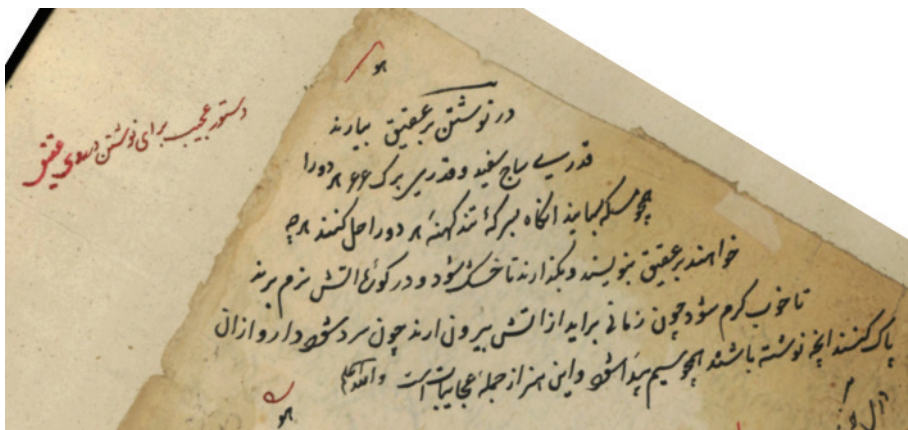 هو
دستور عجیب برای نوشتن در روی عقیق
در نوشتن بر عقیق بیارند
قدری ساج سفید و قدری برک ۶۶ هر دو را
همچو مسکه بسایند انکاه بسرکهٔ تند کهنه هر دو را حل کنند هر چه
خواهند بر عقیق بنویسند و بکذارند تا خشک شود و در کورهٔ اتش نرم برند
تا خوب کرم شود چون زمانی براید از اتش بیرون ارند چون سرد شود دارو از ان
پاک کنند انچه نوشته باشند همچو سیم پیدا شود و این هنر از جمله عجایبات است والله اعلم
هو